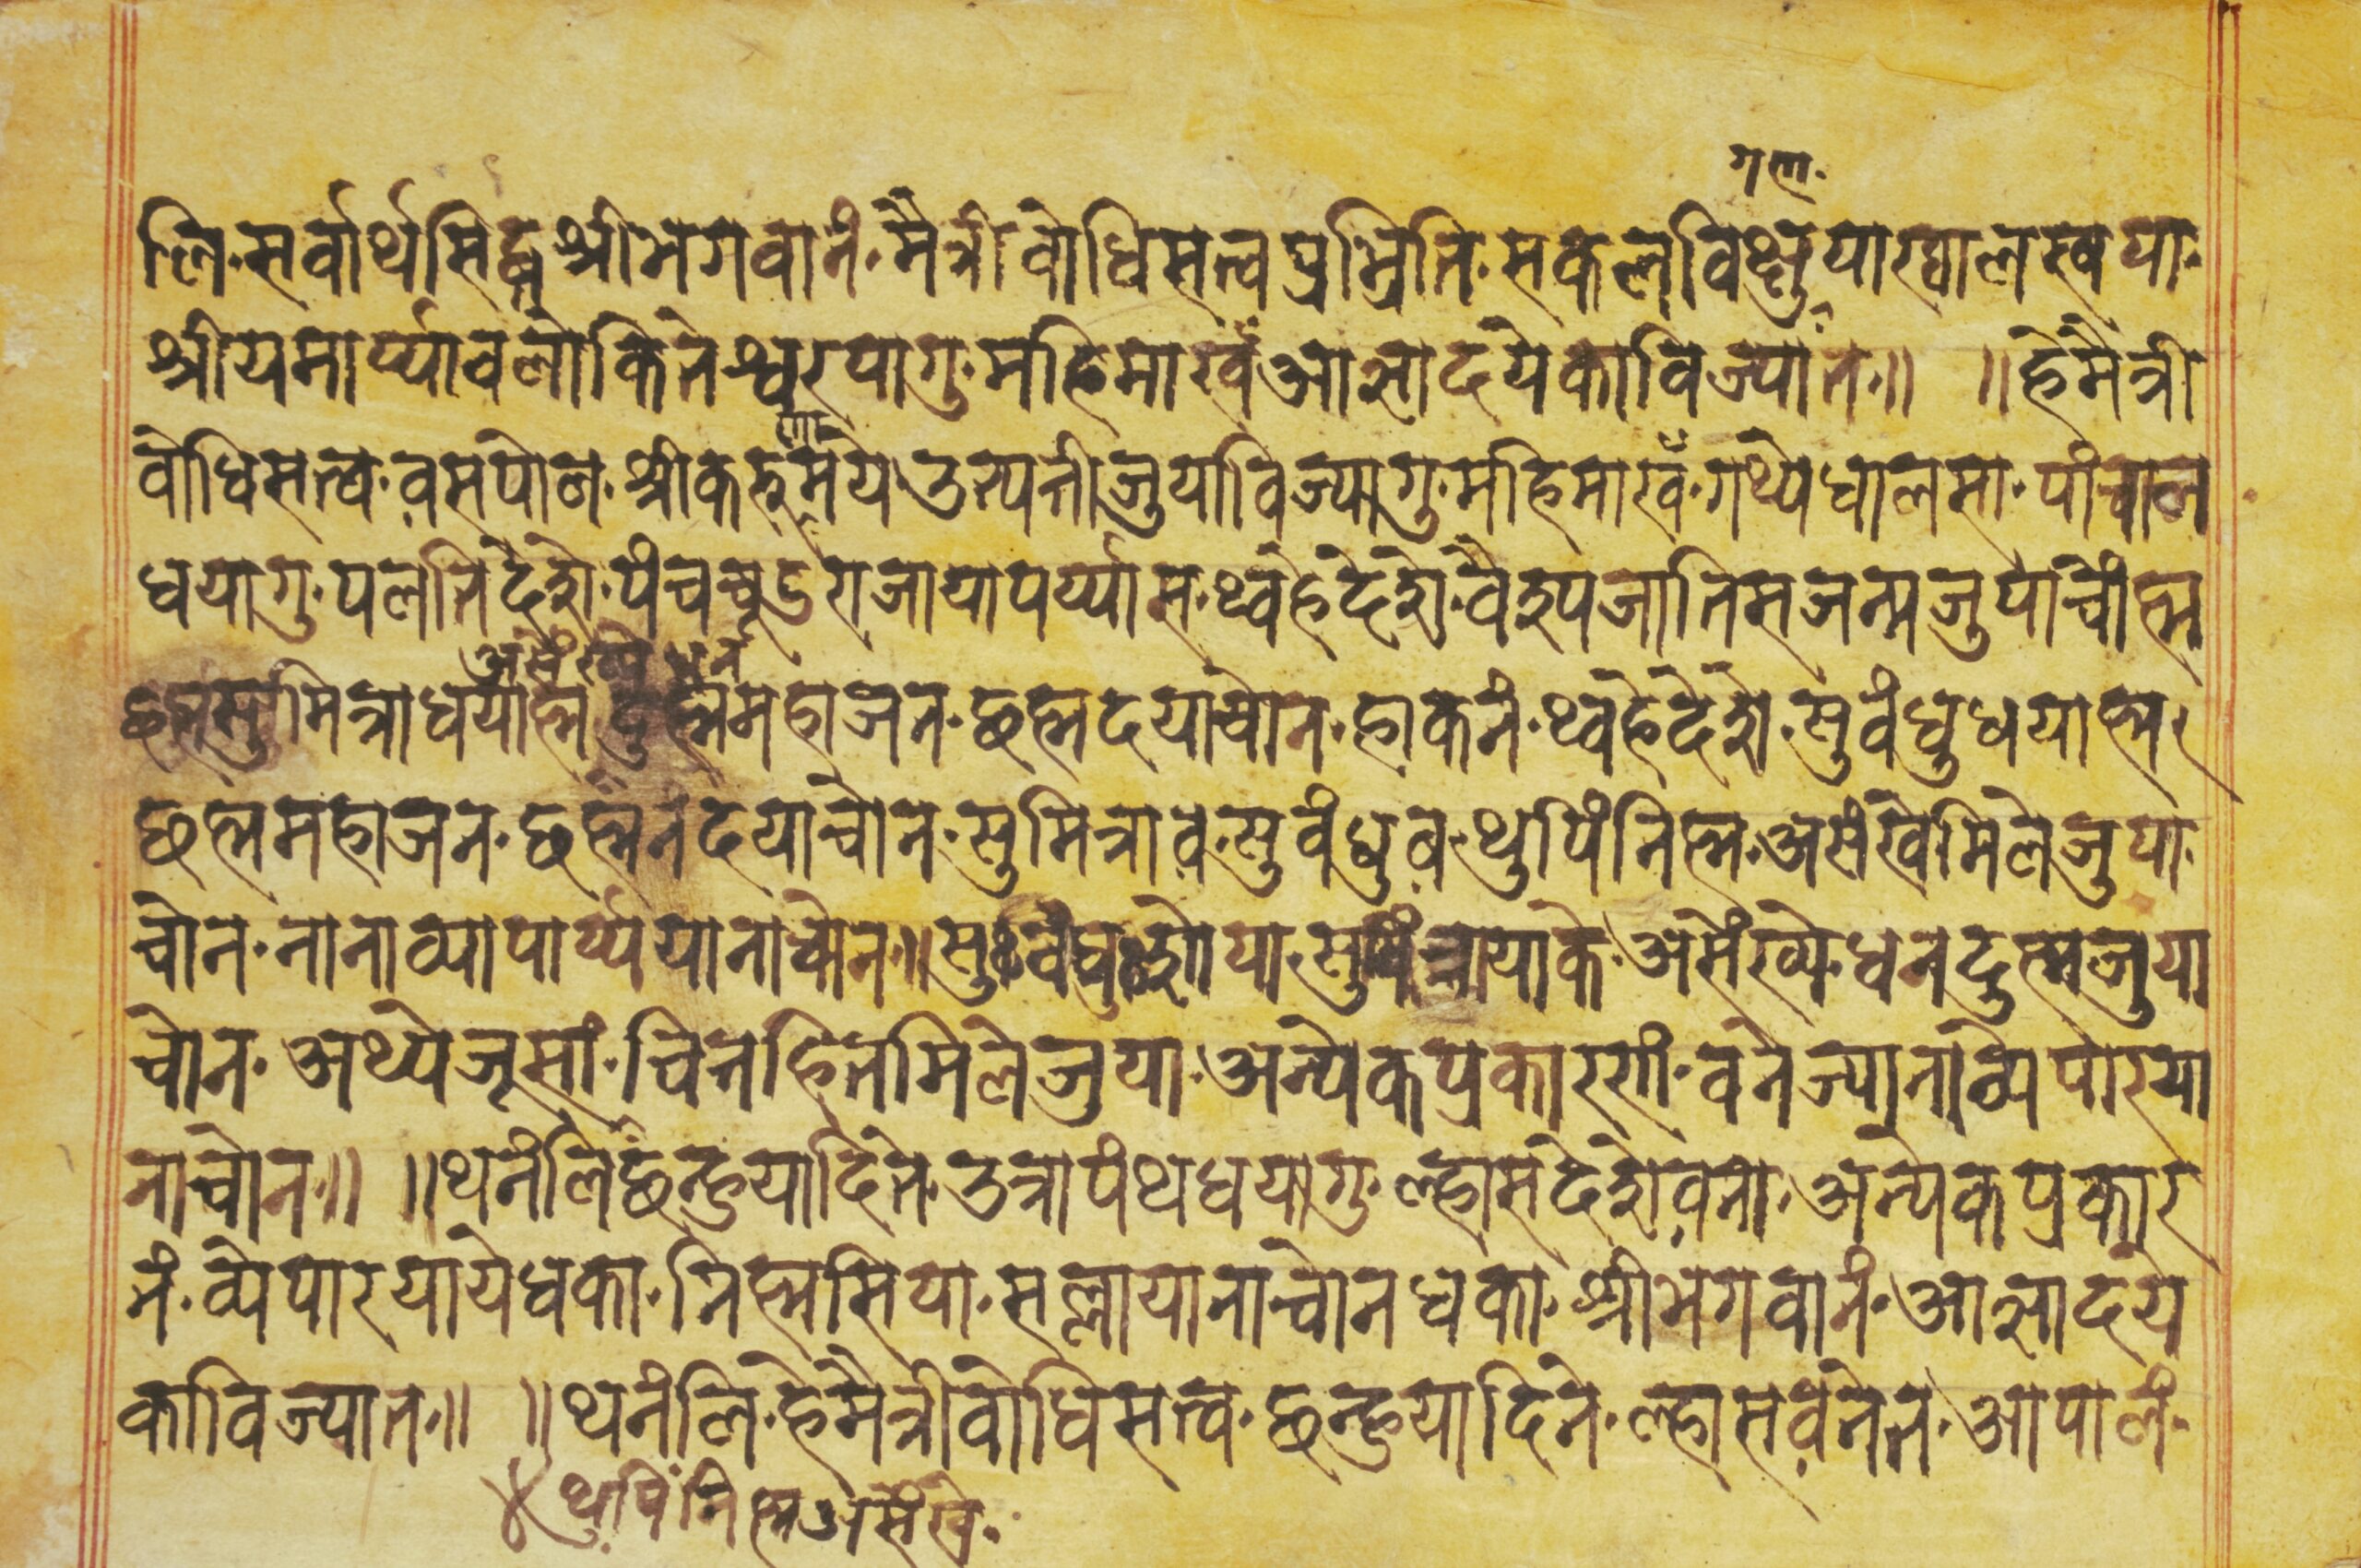 गण.
लि. सर्वार्थसिद्ध श्रीभगवानं. मैत्री वोधिसत्व प्रभ्रिति. सकल विक्षु याख्वालस्वया.
श्रीयमार्य्यावलोकितेश्वरयागु. महिमाखँ आज्ञादयेकाविज्यात.॥ ॥ हेमैत्री
वोधिसत्व. व़सपोल. श्रीकरुणामये उत्पत्तीजुयाविज्यागु. महिमाखँ. गथ्ये धालसा. पांचाल
धयागु. पलतिदेशे. पंचचूड राजाया पर्य्यास. थ्वहेदेशे. वैश्यजातिस जन्मजुयाचोंह्म
असंख्ये धनं
छह्मसुमित्रा धयाह्म दुह्म महाजन. छह्म दयाचोन. हाकनं. थ्वहेदेशे. सुवंधु धयाह्म
छह्म महाजन. छह्मनं दयाचोन. सुमित्राव़. सुवंधुव़. थुपिं निह्म. असंखे मिलेजुया.
चोन. नानाव्यापार्य्ययानाचोन.॥ सुवंधु या. सुमित्रायाके. असंख्ये. धनदुह्मजुया
चोन. अथ्येजूसां. चित्तहित्त मिलेजुया. अन्येकप्रकारसां. वनेज्याना व्येपारया
नाचोन.॥ ॥ थनंलि छन्हुयादिने. उत्रापंथ धयागु. ल्हासदेशे व़ना. अन्येकप्रकार
नं. व्येपारयाये धका. निह्मसिया. सल्लायानाचोन धका. श्रीभगवानं. आज्ञादये
काविज्यात.॥ ॥ थनंलि. हेमैत्रीवोधिसत्व. छन्हुयादिने. ल्हासव़नेत. आपालं.
४ थुपिंनिह्म असंखे.